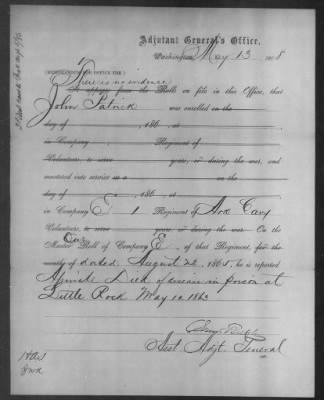 Adjutant General's Office,
Washington, May 13, 1868
There is no evidence
It appears from the Rolls on file in this Office, that
John Patrick was enrolled on the
day of , 186 , at
in Company , Regiment of
Volunteers, to serve years, or during the war, and
mustered into service as a on the
day of , 186 , at
in Company E, 1 Regiment of Ark Cavy
Volunteers, to serve years, or during the war. On the
Muster Out Roll of Company E, of that Regiment, for the
months of dated August 22, 1865, he is reported
Died of in prison at
Little Rock May 10 1863
Asst Adjt. General